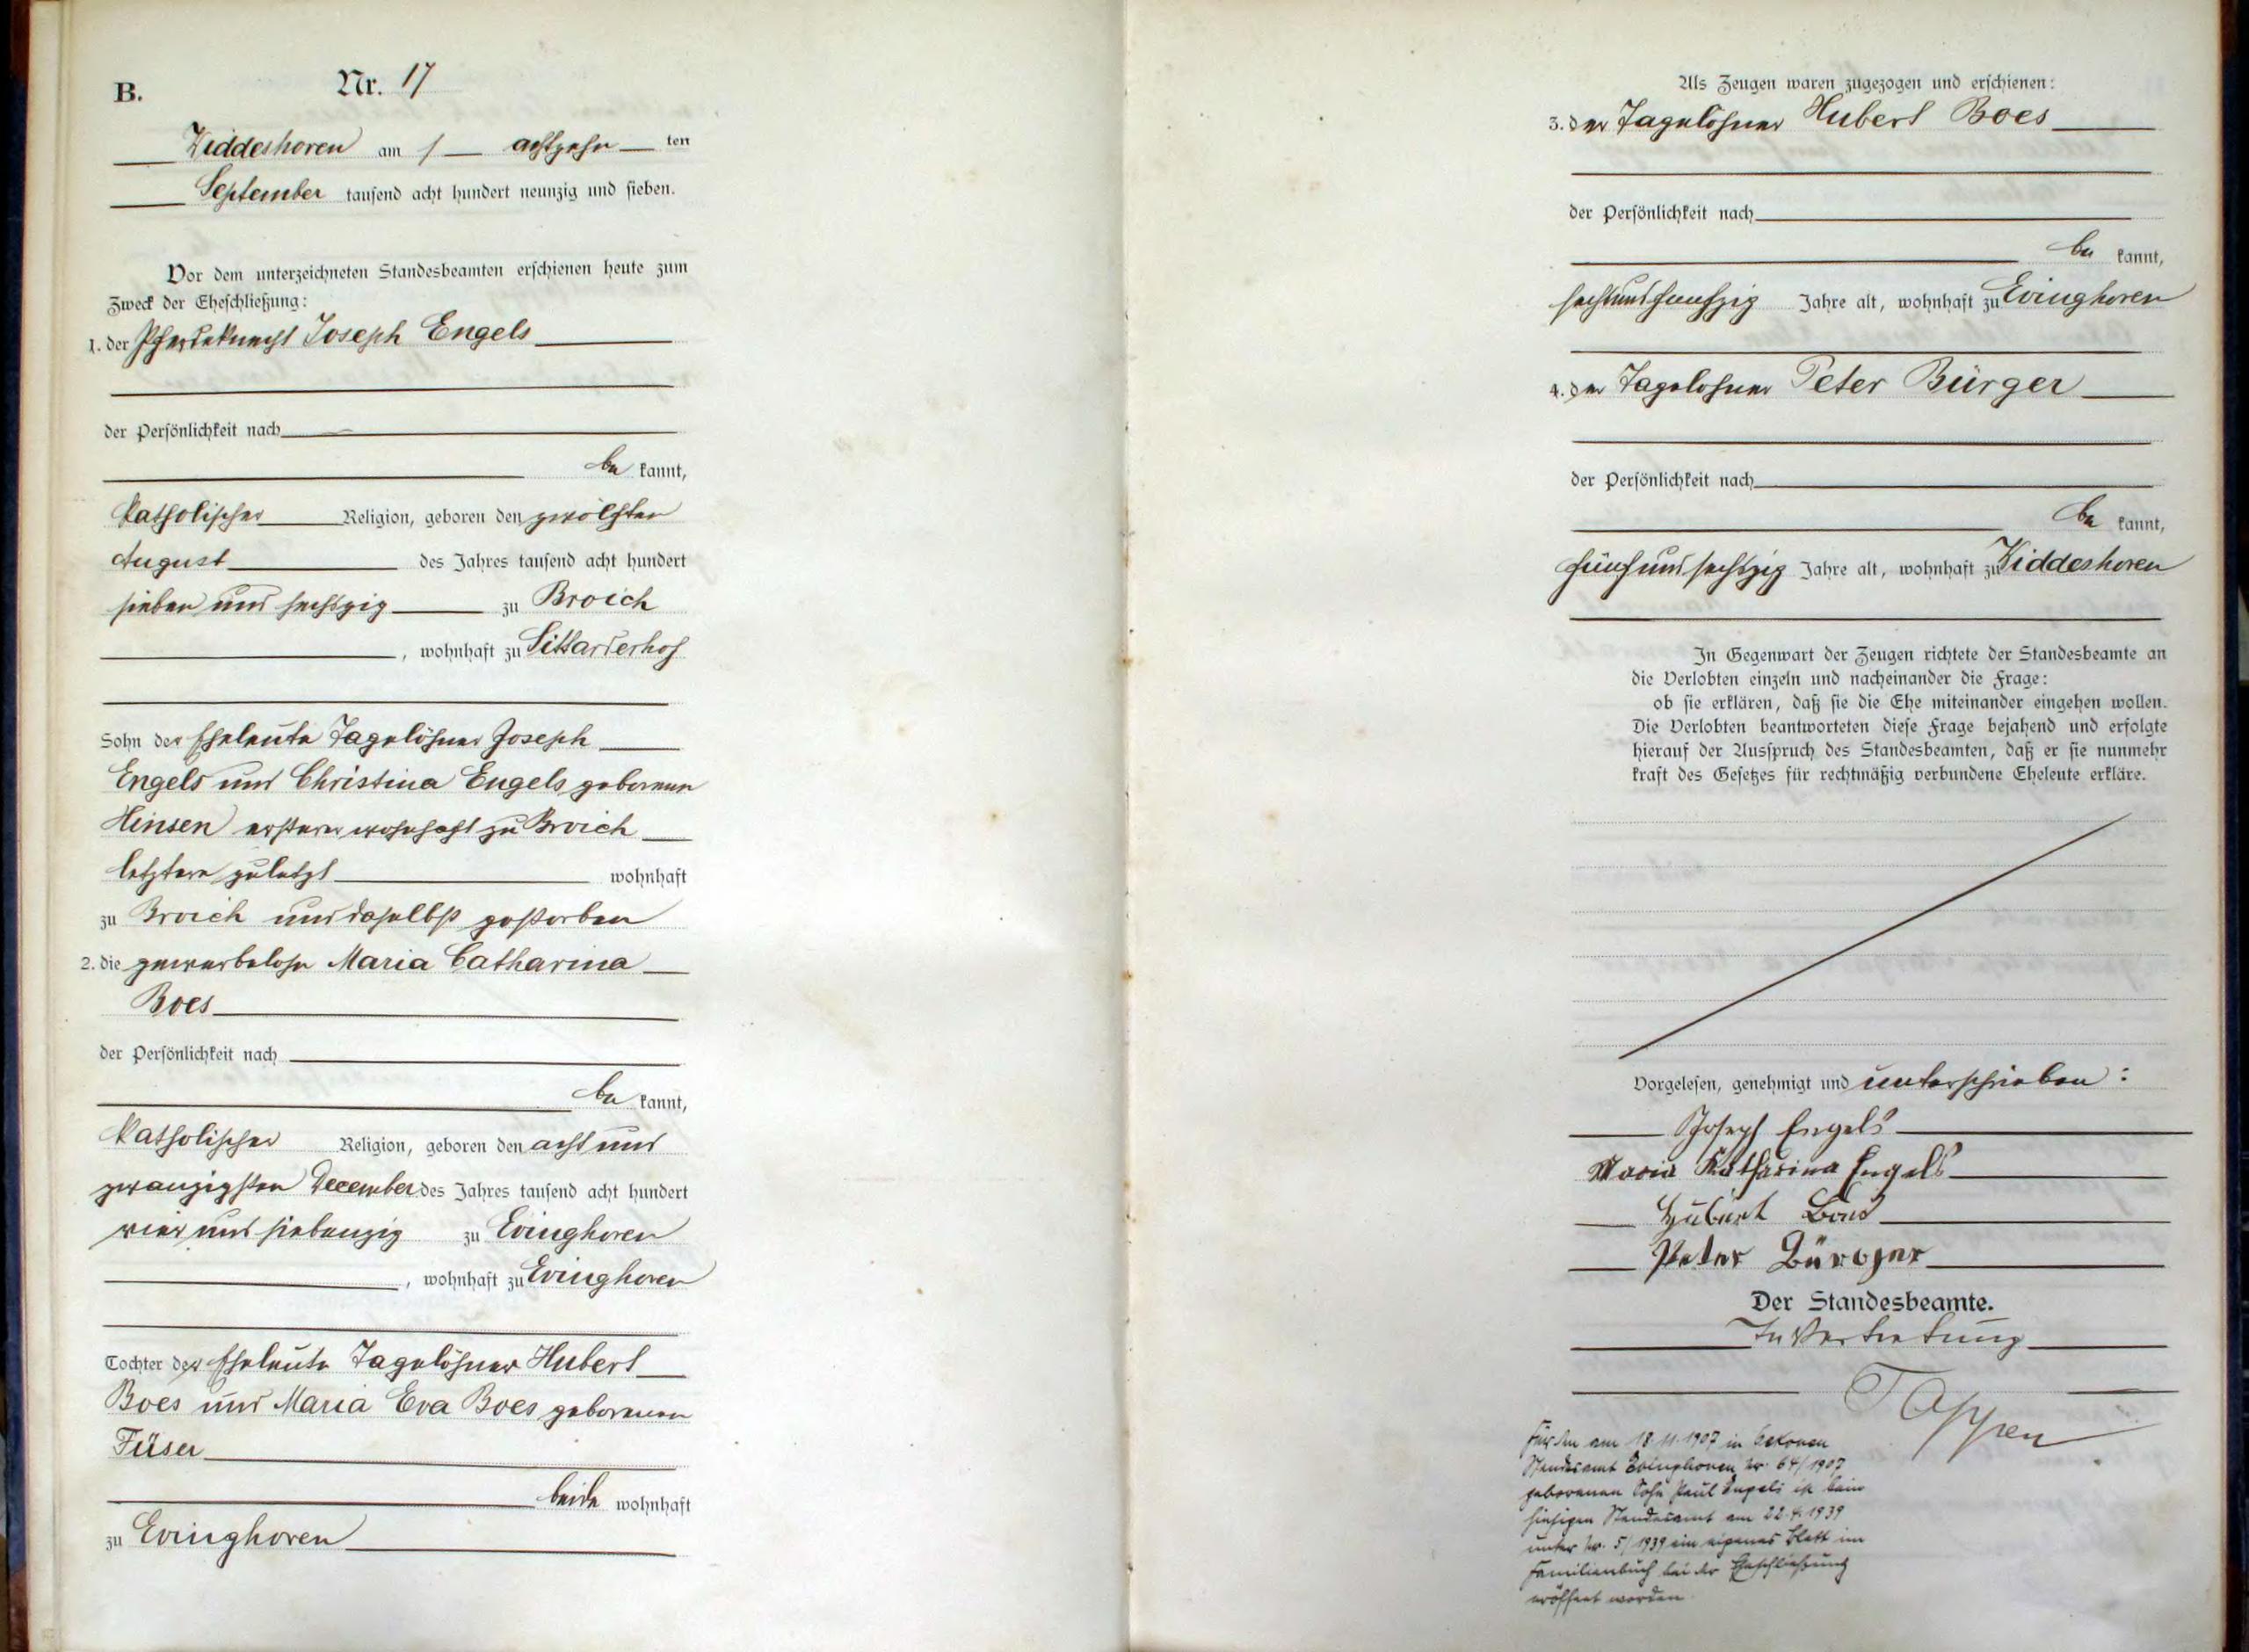 B. Nr. 17
Widdeshoven am / achtzehn ten
September tausend acht hundert neunzig und sieben.
Vor dem unterzeichneten Standesbeamten erschienen heute zum
Zweck der Eheschließung:
1. der Pferdeknecht Joseph Engels
der Persönlichkeit nach
be kannt,
katholischer Religion, geboren den zwölften
August des Jahres tausend acht hundert
sieben und sechszig zu Broich
, wohnhaft zu Sittarderhof
Sohn der Eheleute Tagelöhner Joseph
Engels und Christina Engels geborenen
Hinsen ersterer wohnhaft zu Broich
letztere zuletzt wohnhaft
zu Broich und daselbst gestorben
2. die gewerbelose Maria Catharina
Boes
der Persönlichkeit nach
be kannt,
katholischer Religion, geboren den acht und
zwanzigsten December des Jahres tausend acht hundert
vier und siebenzig zu Evinghoven
, wohnhaft zu Evinghoven
Tochter der Eheleute Tagelöhner Hubert
Boes und Maria Eva Boes geborenen
Füser
beide wohnhaft
zu Evinghoven
Als Zeugen waren zugezogen und erschienen:
3. der Tagelöhner Hubert Boes
der Persönlichkeit nach
be kannt,
sechsundfünfzig Jahre alt, wohnhaft zu Evinghoven
4. der Tagelöhner Peter Bürger
der Persönlichkeit nach
be kannt,
fünfundsechszig Jahre alt, wohnhaft zu Widdeshoven
In Gegenwart der Zeugen richtete der Standesbeamte an
die Verlobten einzeln und nacheinander die Frage:
ob sie erklären, daß sie die Ehe miteinander eingehen wollen.
Die Verlobten beantworteten diese Frage bejahend und erfolgte
hierauf der Ausspruch des Standesbeamten, daß er sie nunmehr
kraft des Gesetzes für rechtmäßig verbundene Eheleute erkläre.
Vorgelesen, genehmigt und unterschrieben:
Joseph Engels
Maria Katharina Engels
Hubert Boes
Peter Bürger
Der Standesbeamte.
In Vertretung
Tappen
Für den am 18.11.1907 in
Standesamt Evinghoven Nr. 64/1907
geborenen Sohn Paul Engels ist beim
hiesigen Standesamt am 22.4.1939
unter Nr. 5/1939 ein eigenes Blatt im
Familienbuch bei der Eheschließung
eröffnet worden.